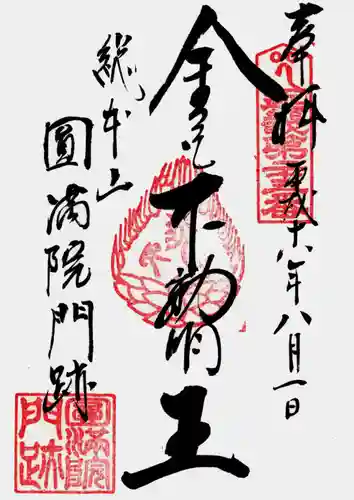 奉拝
平成十八年八月一日
金色不動明王
総本山
圓満院門跡
圓満院
門跡